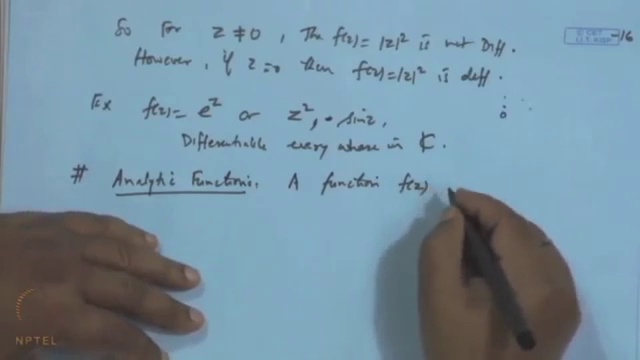 So For z ≠ 0, The f(z) = |z|² is not Diff.
However, if z=0 then f(z) = |z|² is diff.
Ex f(z) = e^z or z², sinz,
Differentiable every where in ₵.
# Analytic Functions. A function f(z)
-16
NPTEL